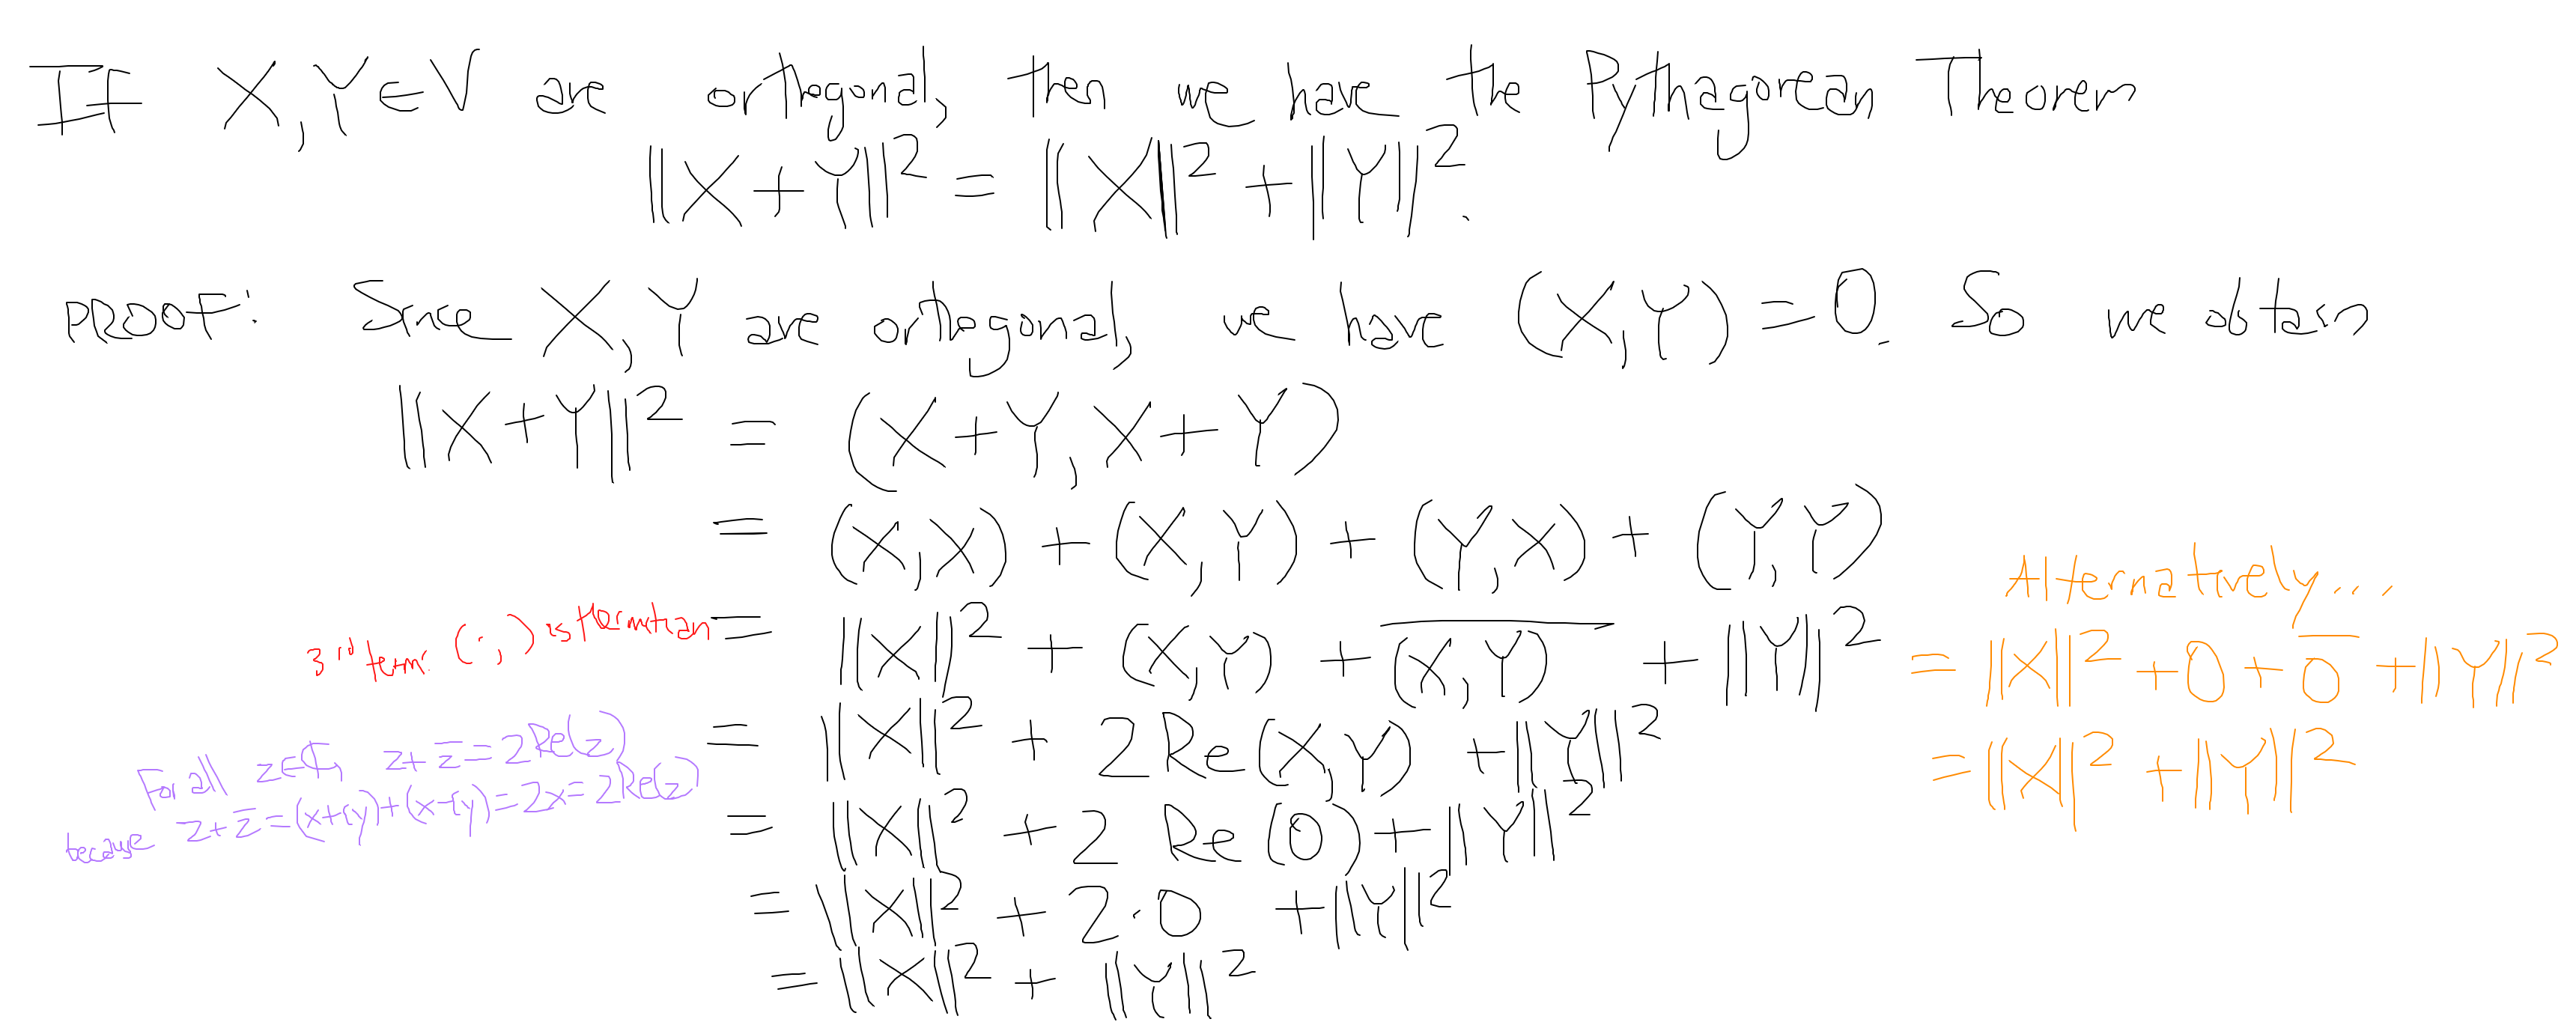 If X, Y ∈ V are orthogonal, then we have the Pythagorean Theorem
||X+Y||² = ||X||² + ||Y||².
PROOF: Since X, Y are orthogonal, we have (X,Y) = 0. So we obtain
||X+Y||² = (X+Y, X+Y)
= (X,X) + (X,Y) + (Y,X) + (Y,Y)
3rd term: (·,) is Hermitian
= ||X||² + (X,Y) + \overline{(X,Y)} + ||Y||²
= ||X||² + 2Re(X,Y) + ||Y||²
For all z∈ℂ, z+z̄=2Re(z)
because z+z̄=(x+iy)+(x-iy)=2x=2Re(z)
= ||X||² + 2 Re(0) + ||Y||²
= ||X||² + 2·0 + ||Y||²
= ||X||² + ||Y||²
Alternatively...
= ||X||² + 0 + \overline{0} + ||Y||²
= ||X||² + ||Y||²